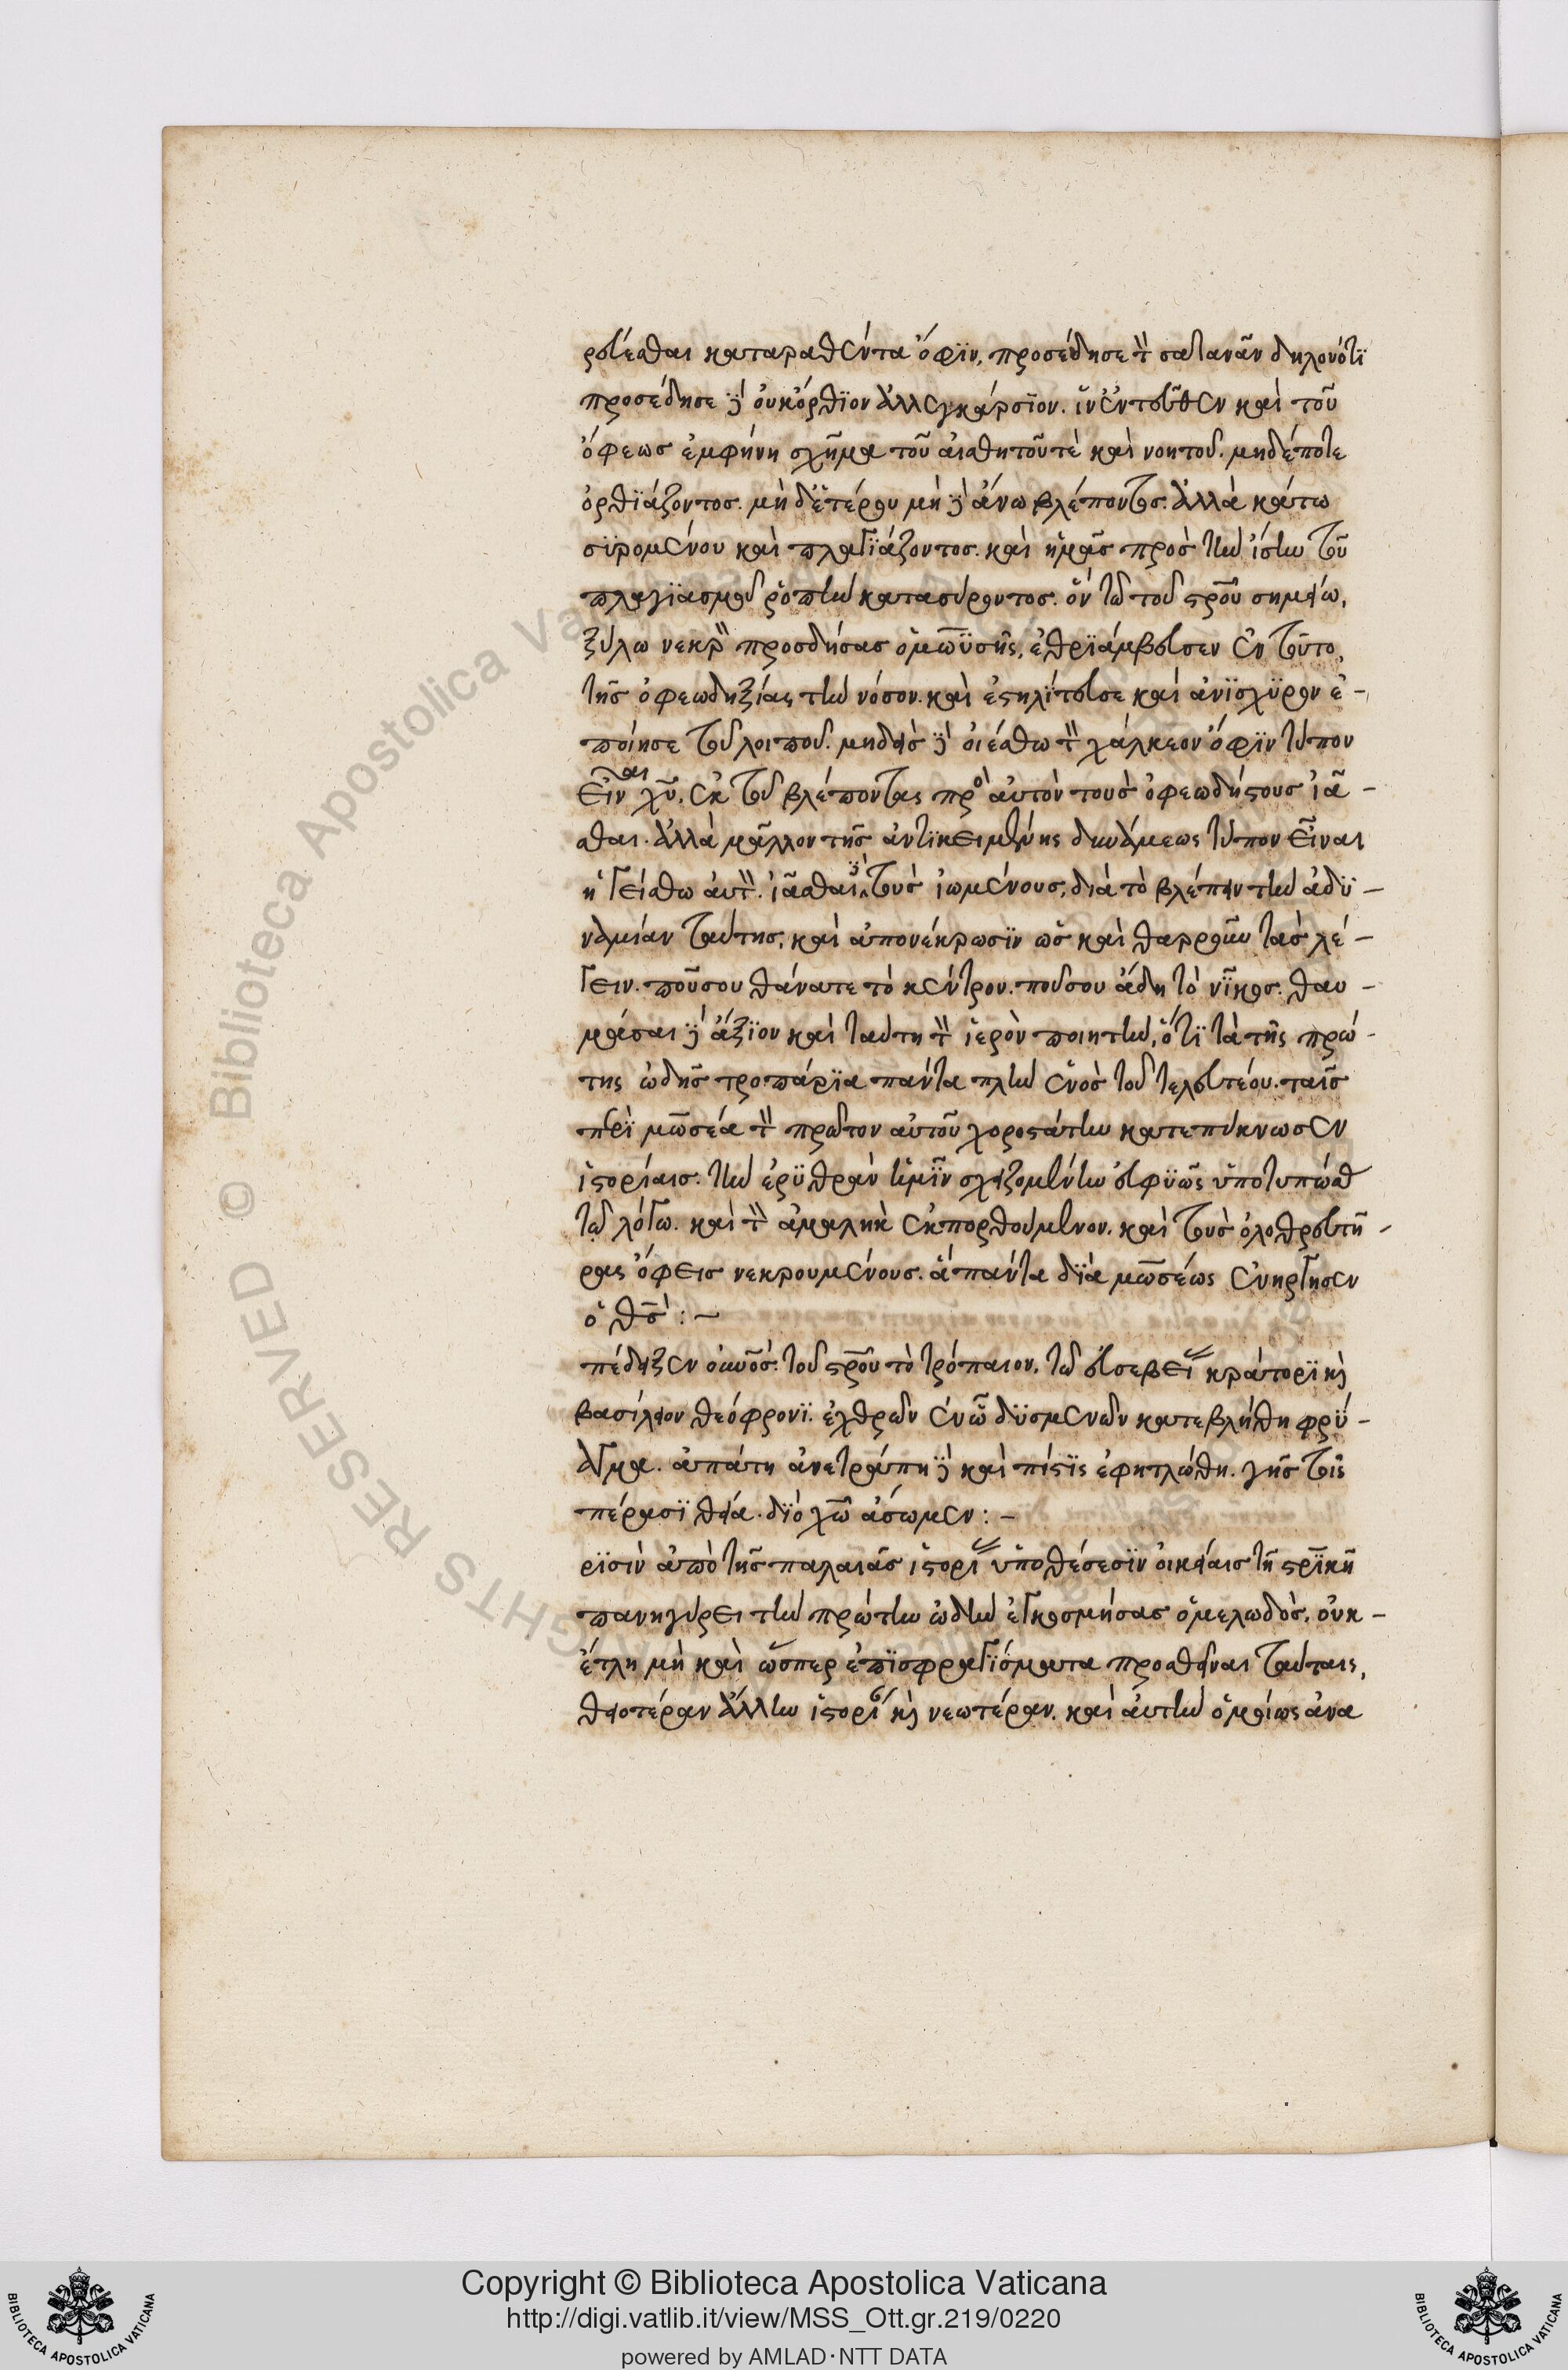 ρεύεσθαι καταραθέντα ὄφϊν, προσέδησε τὸν σατανᾶν δηλονότϊ
προσέδησε δὲ οὐκ ὄρθϊον ἀλλ ἐγκάρσϊον. ἵν ἐντεῦθεν καὶ τοῦ
ὄφεως ἐμφήνη σχῆμα τοῦ αἰσθητοῦ τὲ καὶ νοητοῦ. μηδέποτε
ὀρθϊάζοντος. μὴ δ ἑτέρου μὴ δὲ ἄνω βλέποντος. ἀλλὰ κάτω
συρομένου καὶ πλαγϊάζοντος. καὶ ἡμᾶς πρὸς τὴν ἴσην τοῦ
πλαγϊασμοῦ ῥοπὴν κατασύροντος. ὃν τῶ τοῦ σταυροῦ σημείω,
ξύλω νεκρὸν προσδήσας ὁ μωϋσῆς, ἐθρϊάμβευσεν ἐν τούτο,
τῆς ὀφεωδηξίας τὴν νόσον. καὶ ἐστηλίτευσε καὶ ἀνϊσχϋρον ἐ-
ποίησε τοῦ λοιποῦ. μηδεὶς δὲ οἰέσθω τὸν χάλκεον ὄφϊν τύπον
εἶναι χῦ, ἐκ τοῦ βλέποντας πρὸ αὐτὸν τοὺς ὀφεωδήκτους ἰᾶ-
σθαι. ἀλλὰ μᾶλλον τῆς ἀντϊκειμένης δυνάμεως τύπον εἶναι
ἡγείσθω αὐτὸν. ἰᾶσθαι δὲ τοὺς ἰωμένους, διὰ τὸ βλέπειν τὴν ἀδϋ-
ναμίαν ταύτης, καὶ ἀπονέκρωσϊν ὡς καὶ θαρροῦντας λέ-
γειν. ποῦ σου θάνατε τὸ κέντρον. ποῦ σου ἄδη τὸ νῖκος. θαυ-
μάσαι δὲ ἄξϊον καὶ ταύτη τὸν ἱερὸν ποιητὴν, ὅτϊ τὰ τῆς πρώ-
της ὠδῆς τροπάρϊα πάντα πλὴν ἑνὸς τοῦ τελευτέου. ταῖς
περὶ μωσέα τὸν πρῶτον αὐτοῦ χοροστάτην κατεπύκνωσεν
ἱστορίαις. τὴν ἐρϋθρὰν ἡμῖν σχιζομένην εὐφϋῶς ὑποτυπώσας
τῶ λόγω. καὶ τὸν ἀμαλὴκ ἐκπορθούμενον. καὶ τοὺς ὀλοθρευτῆ-
ρας ὄφεις νεκρουμένους. ἃ πάντα δϊὰ μωσέως ἐνήργησεν
ὁ θς : –
πέδειξεν οὐνος. τοῦ σροῦ τὸ τρόπαιον, τῶ εὐσεβεῖ κράτορϊ κὶ
βασίλειον θεόφρονϊ. ἐχθρῶν ἐν ὧ δϋσμενῶν κατεβλήθη φρϋ-
αγμα. ἀπάτη ἀνετράπη δὲ καὶ πίστϊς ἐφηπλώθη. γῆς τοῖς
πέρασϊ θεία. δϊὸ χῶ ἄσωμεν : –
ρϊσὶν ἀπὸ τῆς παλαιᾶς ἱστορί ὑποθέσεσϊν οἰκείαις τῆ σρϊκῆ
πανηγύρει τὴν πρώτην ὠδὴν ἐγκοσμήσας ὁ μελωδὸς, οὐκ-
έτλη μὴ καὶ ὥσπερ ἐπϊσφραγϊσματα προσθεῖναι ταύταις,
θειοτέραν ἄλλην ἱστορί κὶ νεωτέραν. καὶ αὐτὴν ὁμοίως ἀνα
Copyright © Biblioteca Apostolica Vaticana
http://digi.vatlib.it/view/MSS_Ott.gr.219/0220
powered by AMLAD·NTT DATA